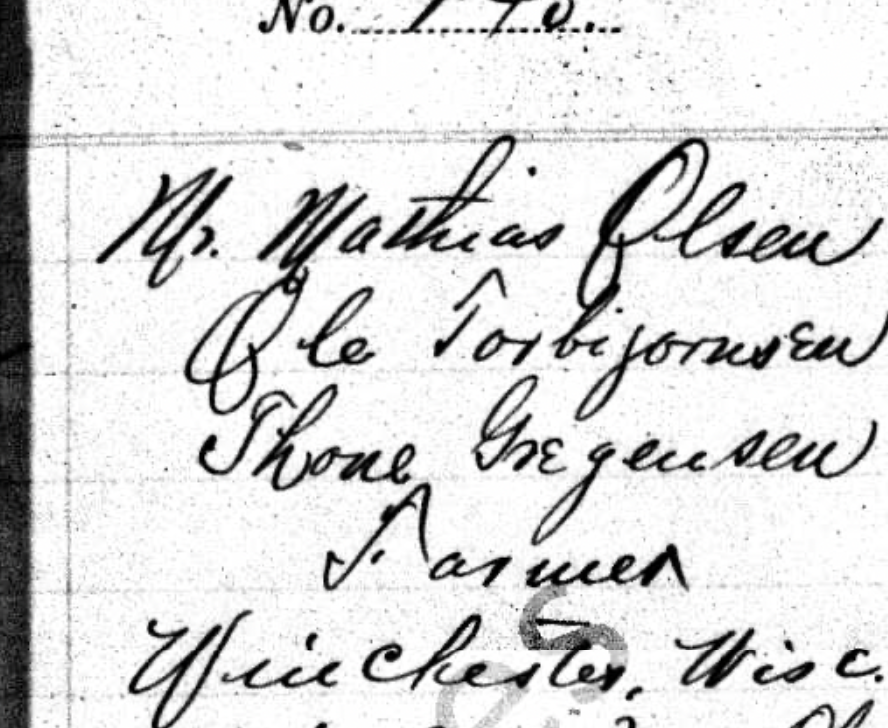 No.
Mr. Mathias Olsen
Ole Torbijornsen
Thone Gregensen
Farmer
Winchester, Wisc.